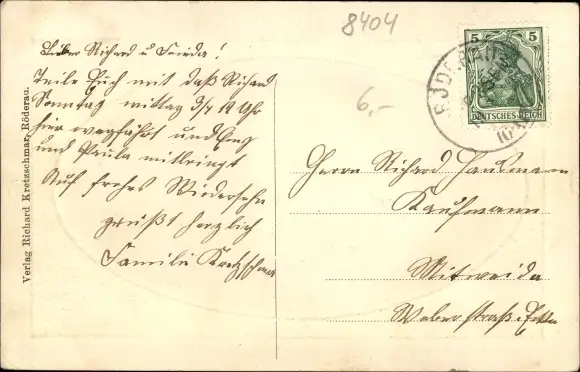 8404
6,-
Lieber Richard u Frieda!
Teile Euch mit daß Richard
Sonntag mittag 3/4 12 Uhr
hier wegfährt und Eng
und Paula mitbringt
Auf frohes Wiedersehn
grüßt herzlich
Familie Kretzschmar
Verlag Richard Kretzschmar, Röderau.
5 5
DEUTSCHES REICH
RÖDERAU
Herrn Richard Hausmann
Kaufmann
Mitweida
Weberstraße